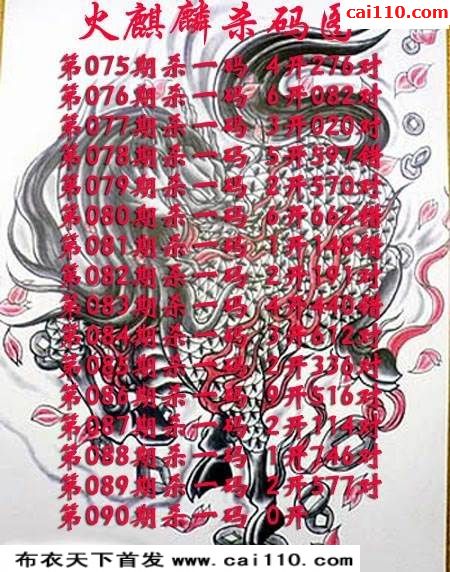 cai110.com
火麒麟杀码区
第075期杀一码 4开276对
第076期杀一码 6开082对
第077期杀一码 3开020对
第078期杀一码 5开597错
第079期杀一码 2开570对
第080期杀一码 6开662错
第081期杀一码 1开148错
第082期杀一码 2开191对
第083期杀一码 4开440错
第084期杀一码 3开612对
第085期杀一码 2开336对
第086期杀一码 9开516对
第087期杀一码 2开114对
第088期杀一码 1开746对
第089期杀一码 2开577对
第090期杀一码 0开
布衣天下首发 www.cai110.com